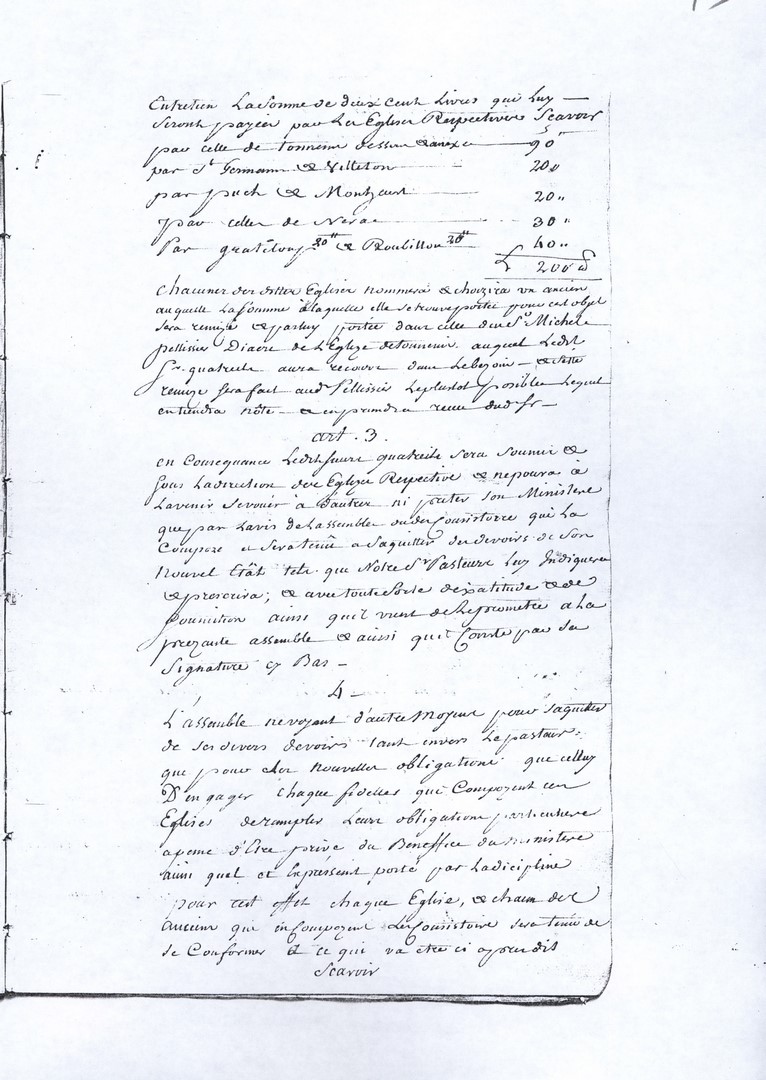 Entretien La Somme de deux Cent Livres qui Luy —
Seront payées par Les Eglises Respectives Scavoir
par celle de tonneins dessus & anexe — 90"
par St Germain & Villeton — 20"
par puch & Monheurt — 20"
par celles de Nerac — 30"
Par grateloup 20" & Roubillou 20" 40"
L 200"
Chacune des dittes Eglises nommera & choizira un ancien
auquelle La Somme a laquelle elle se trouve portée pour cest objet
Sera remize & par luy portée dans celle du Sr Michel
pellissier Diacre de L'Eglize de tonneins auquel Ledit
Sr. quatreite aura recours dans Le bezoin — & cette
remize Sera fait aud. Pellissier Le plustot possible Lequel
en tiendra note — & en prendra reçu dud. Sr —
art. 3.
en Consequance Ledit Sieur quatreite Sera Soumis &
Sous La direction des Eglize Respective & ne poura à
L'avenir Se vouer à d'autres ni porter Son Ministere
que par L'avis de L'assemblée ou des Consistoire qui La
Compoze et Sera tenû a Saquitter des devoirs de Son
Nouvel Etât tels que Notre Sr Pasteur Luy Indiquera
& prescrira; & avec toute Sorte d'exatitude & de
pounition ainsi qu'il vient de Le promettre a La
prezante assemblée & ainsi qu'il Conste par sa
Signature cy Bas —
4 —
L'assemblée ne voyant d'autre Moyens pour S'aquitter
de Ses divers devoirs tant envers Le pasteur
que pour Les Nouvelles obligations que celluy
D'engager Chaque fidelles qui Compozent ces
Eglises de remplir Leurs obligations particulieres
a peine d'Etre privé du Beneffice du Ministere
ainsi quel est Expressement porté par La dicipline
pour cest effet chaque Eglise, & chacun des
anciens qui en Compozent Les Consistoire Sera tenu de
Se Conformer à ce qui va etre ci apres dit
Scavoir